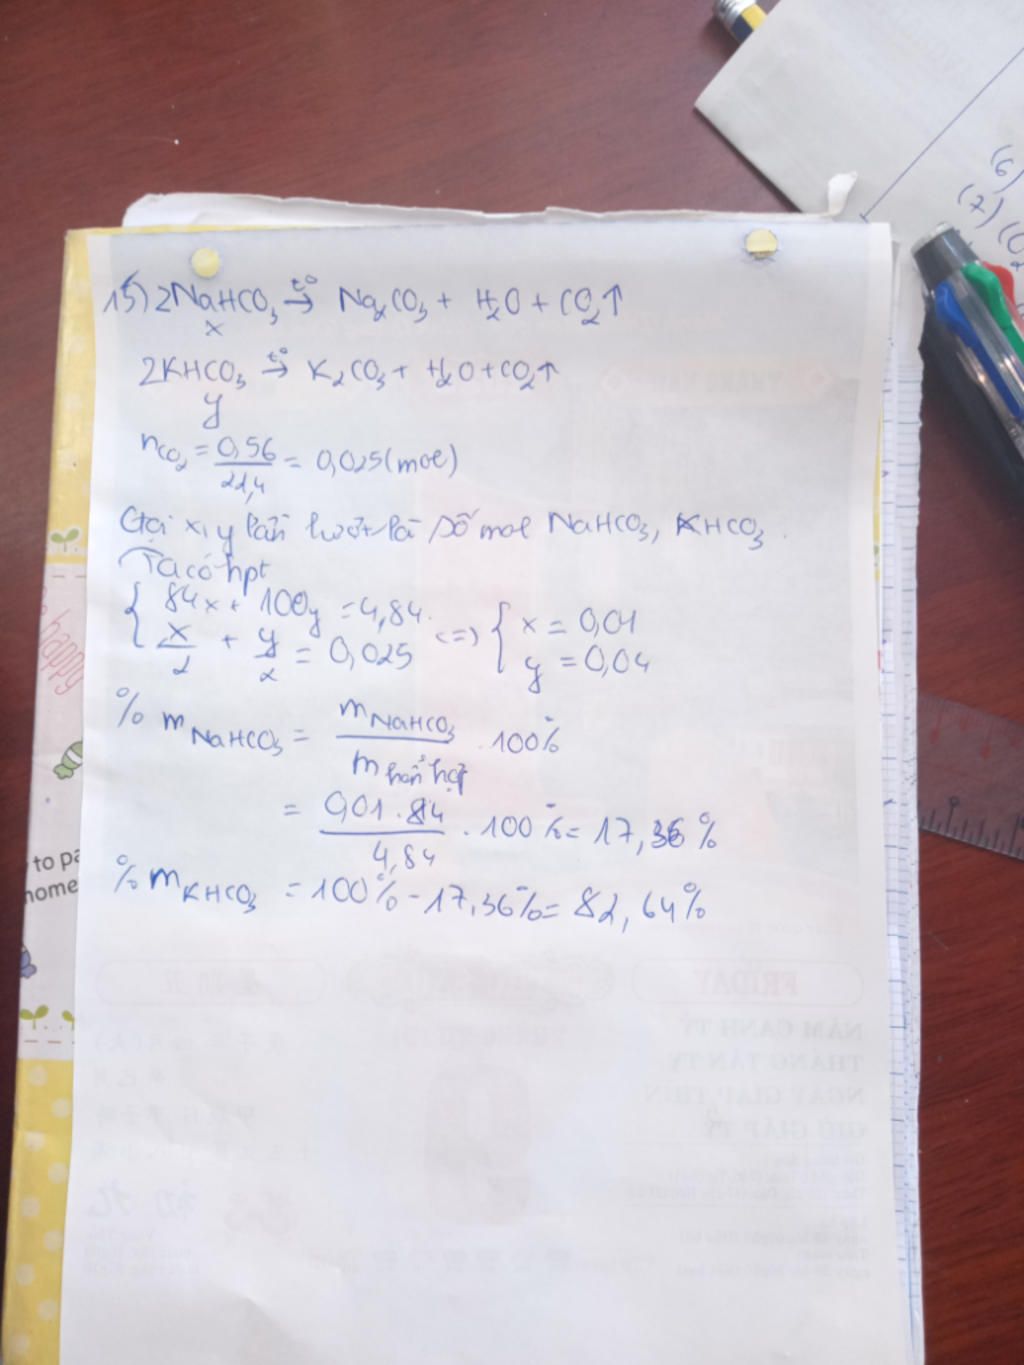 15) 2NaHCO3 t°→ Na2CO3 + H2O + CO2↑
x
2KHCO3 t°→ K2CO3 + H2O + CO2↑
y
nCO2 = 0,56/22,4 = 0,025 (mol)
Gọi x, y lần lượt là số mol NaHCO3, KHCO3.
Ta có hpt
{ 84x + 100y = 4,84
x/2 + y/2 = 0,025 <=> { x = 0,01
y = 0,04
% mNaHCO3 = mNaHCO3/mhỗn hợp . 100%
= 0,01 . 84/4,84 . 100% = 17,36 %
% mKHCO3 = 100% - 17,36% = 82,64%
(6)
(7) CO2
happy
to pa
home
FRIDAY
NĂM CANH TÝ
THÁNG TÂN TỴ
NGÀY GIÁP THÌN
GIỜ GIÁP TÝ